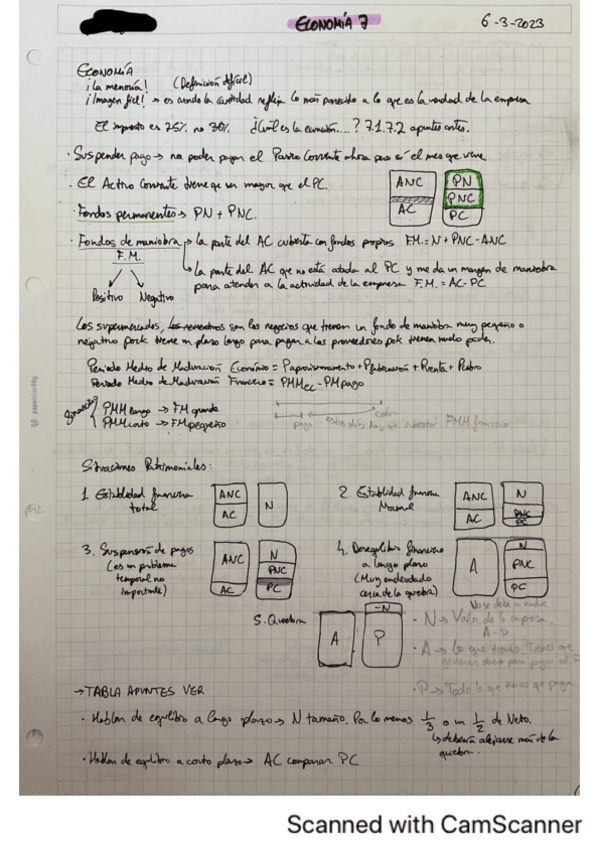 ECONOMÍA 7
6-3-2023
ECONOMÍA
¡La memoria! (Definición difícil)
¡Imagen fiel! → es cuando la contabilidad refleja lo más parecido a lo que es la verdad de la empresa
El impuesto es 25% no 30%. ¿Cuál es la ecuación...? 7.1.7.2 apuntes antes.
· Suspender pago → no poder pagar el Pasivo Corriente ahora pero sí el mes que viene
· El Activo Corriente tiene que ser mayor que el PC.
ANC
AC
PN
PNC
PC
· Fondos permanentes → PN + PNC.
· Fondos de maniobra → la parte del AC cubierta con fondos propios F.M. = N + PNC - ANC
F.M.
↳ la parte del AC que no está atada al PC y me da un margen de maniobra
para atender a la actividad de la empresa F.M. = AC - PC
Positivo Negativo
Los supermercados, son los negocios que tienen un fondo de maniobra muy pequeño o
negativo pork tiene un plazo largo para pagar a los proveedores pok tienen mucho poder.
Periodo Medio de Maduración Económico = Paprovisionamiento + Pfabricación + Pventa + Pcobro
Periodo Medio de Maduración Financiero = PMMec - PM pago
PMM largo → FM grande
PMM corto → FM pequeño
pago
cobro
PMM financiero
Situaciones Patrimoniales:
1. Estabilidad financiera
total
ANC
AC
N
2. Estabilidad financiera
Normal
ANC
AC
N
PNC
PC
3. Suspensión de pagos
(es un problema
temporal no
importante)
ANC
AC
N
PNC
PC
4. Desequilibrio financiero
a largo plazo
(Muy endeudado
cerca de la quiebra)
A
N
PNC
PC
5. Quiebra
A
-N
P
No se debe a nadie
· N → Valor de la empresa
A - P
· A → Lo que tienes. Tienes que
· P → Todo lo que tienes que pagar
→ TABLA APUNTES VER
· Hablan de equilibrio a largo plazo → N tamaño. Por lo menos 1/3 o un 1/2 de Neto.
↳ debería alejarse más de la
quiebra.
· Hablan de equilibrio a corto plazo → AC comparar PC
Scanned with CamScanner